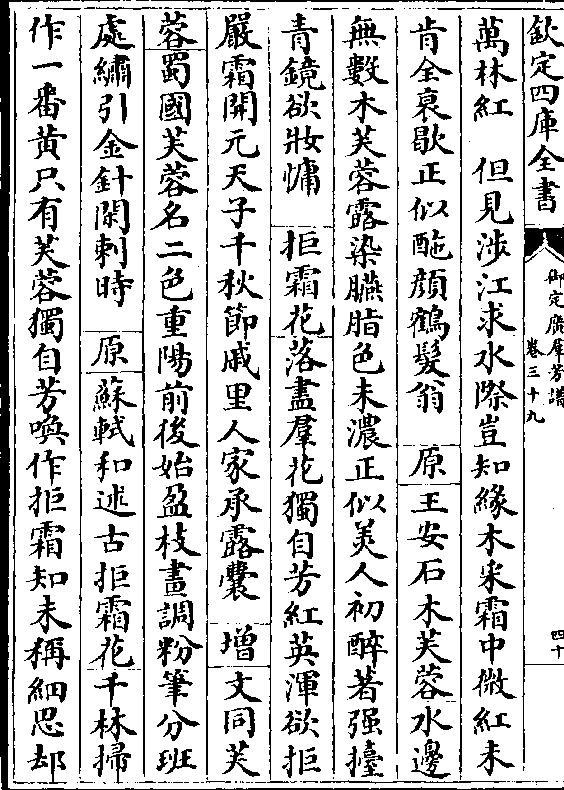 欽定四庫全書
御定廣羣芳譜
卷三十九
四十
萬林紅　但見涉江求水際豈知緣木采霜中微紅未
肯全衰歇正似酡顔鶴髮翁　原　王安石木芙蓉水邊
無數木芙蓉露染臙脂色未濃正似美人初醉著强擡
青鏡欲妝慵　拒霜花落盡羣花獨自芳紅英渾欲拒
嚴霜開元天子千秋節戚里人家承露囊　增　文同芙
蓉蜀國芙蓉名二色重陽前後始盈枝畫調粉筆分班
處繡引金針閑刺時　原　蘇軾和述古拒霜花千林掃
作一番黄只有芙蓉獨自芳喚作拒霜知未稱細思却